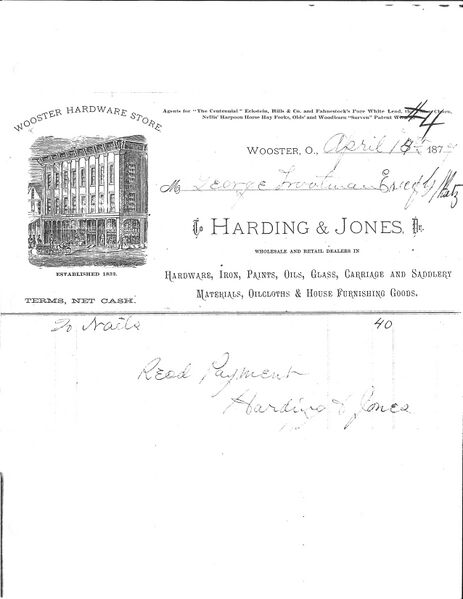 WOOSTER HARDWARE STORE.
Agents for "The Centennial" Eckstein, Hills & Co. and Fahnestock's Pure White Lead,
Nellis' Harpoon Horse Hay Forks, Olds' and Woodburn "Sarven" Patent
#4
WOOSTER, O., April 187
M George Trootman
To HARDING & JONES, Dr.
WHOLESALE AND RETAIL DEALERS IN
HARDWARE, IRON, PAINTS, OILS, GLASS, CARRIAGE AND SADDLERY
MATERIALS, OILCLOTHS & HOUSE FURNISHING GOODS.
ESTABLISHED 1832.
TERMS, NET CASH.
To Nails 40
Recd Payment
Harding & Jones